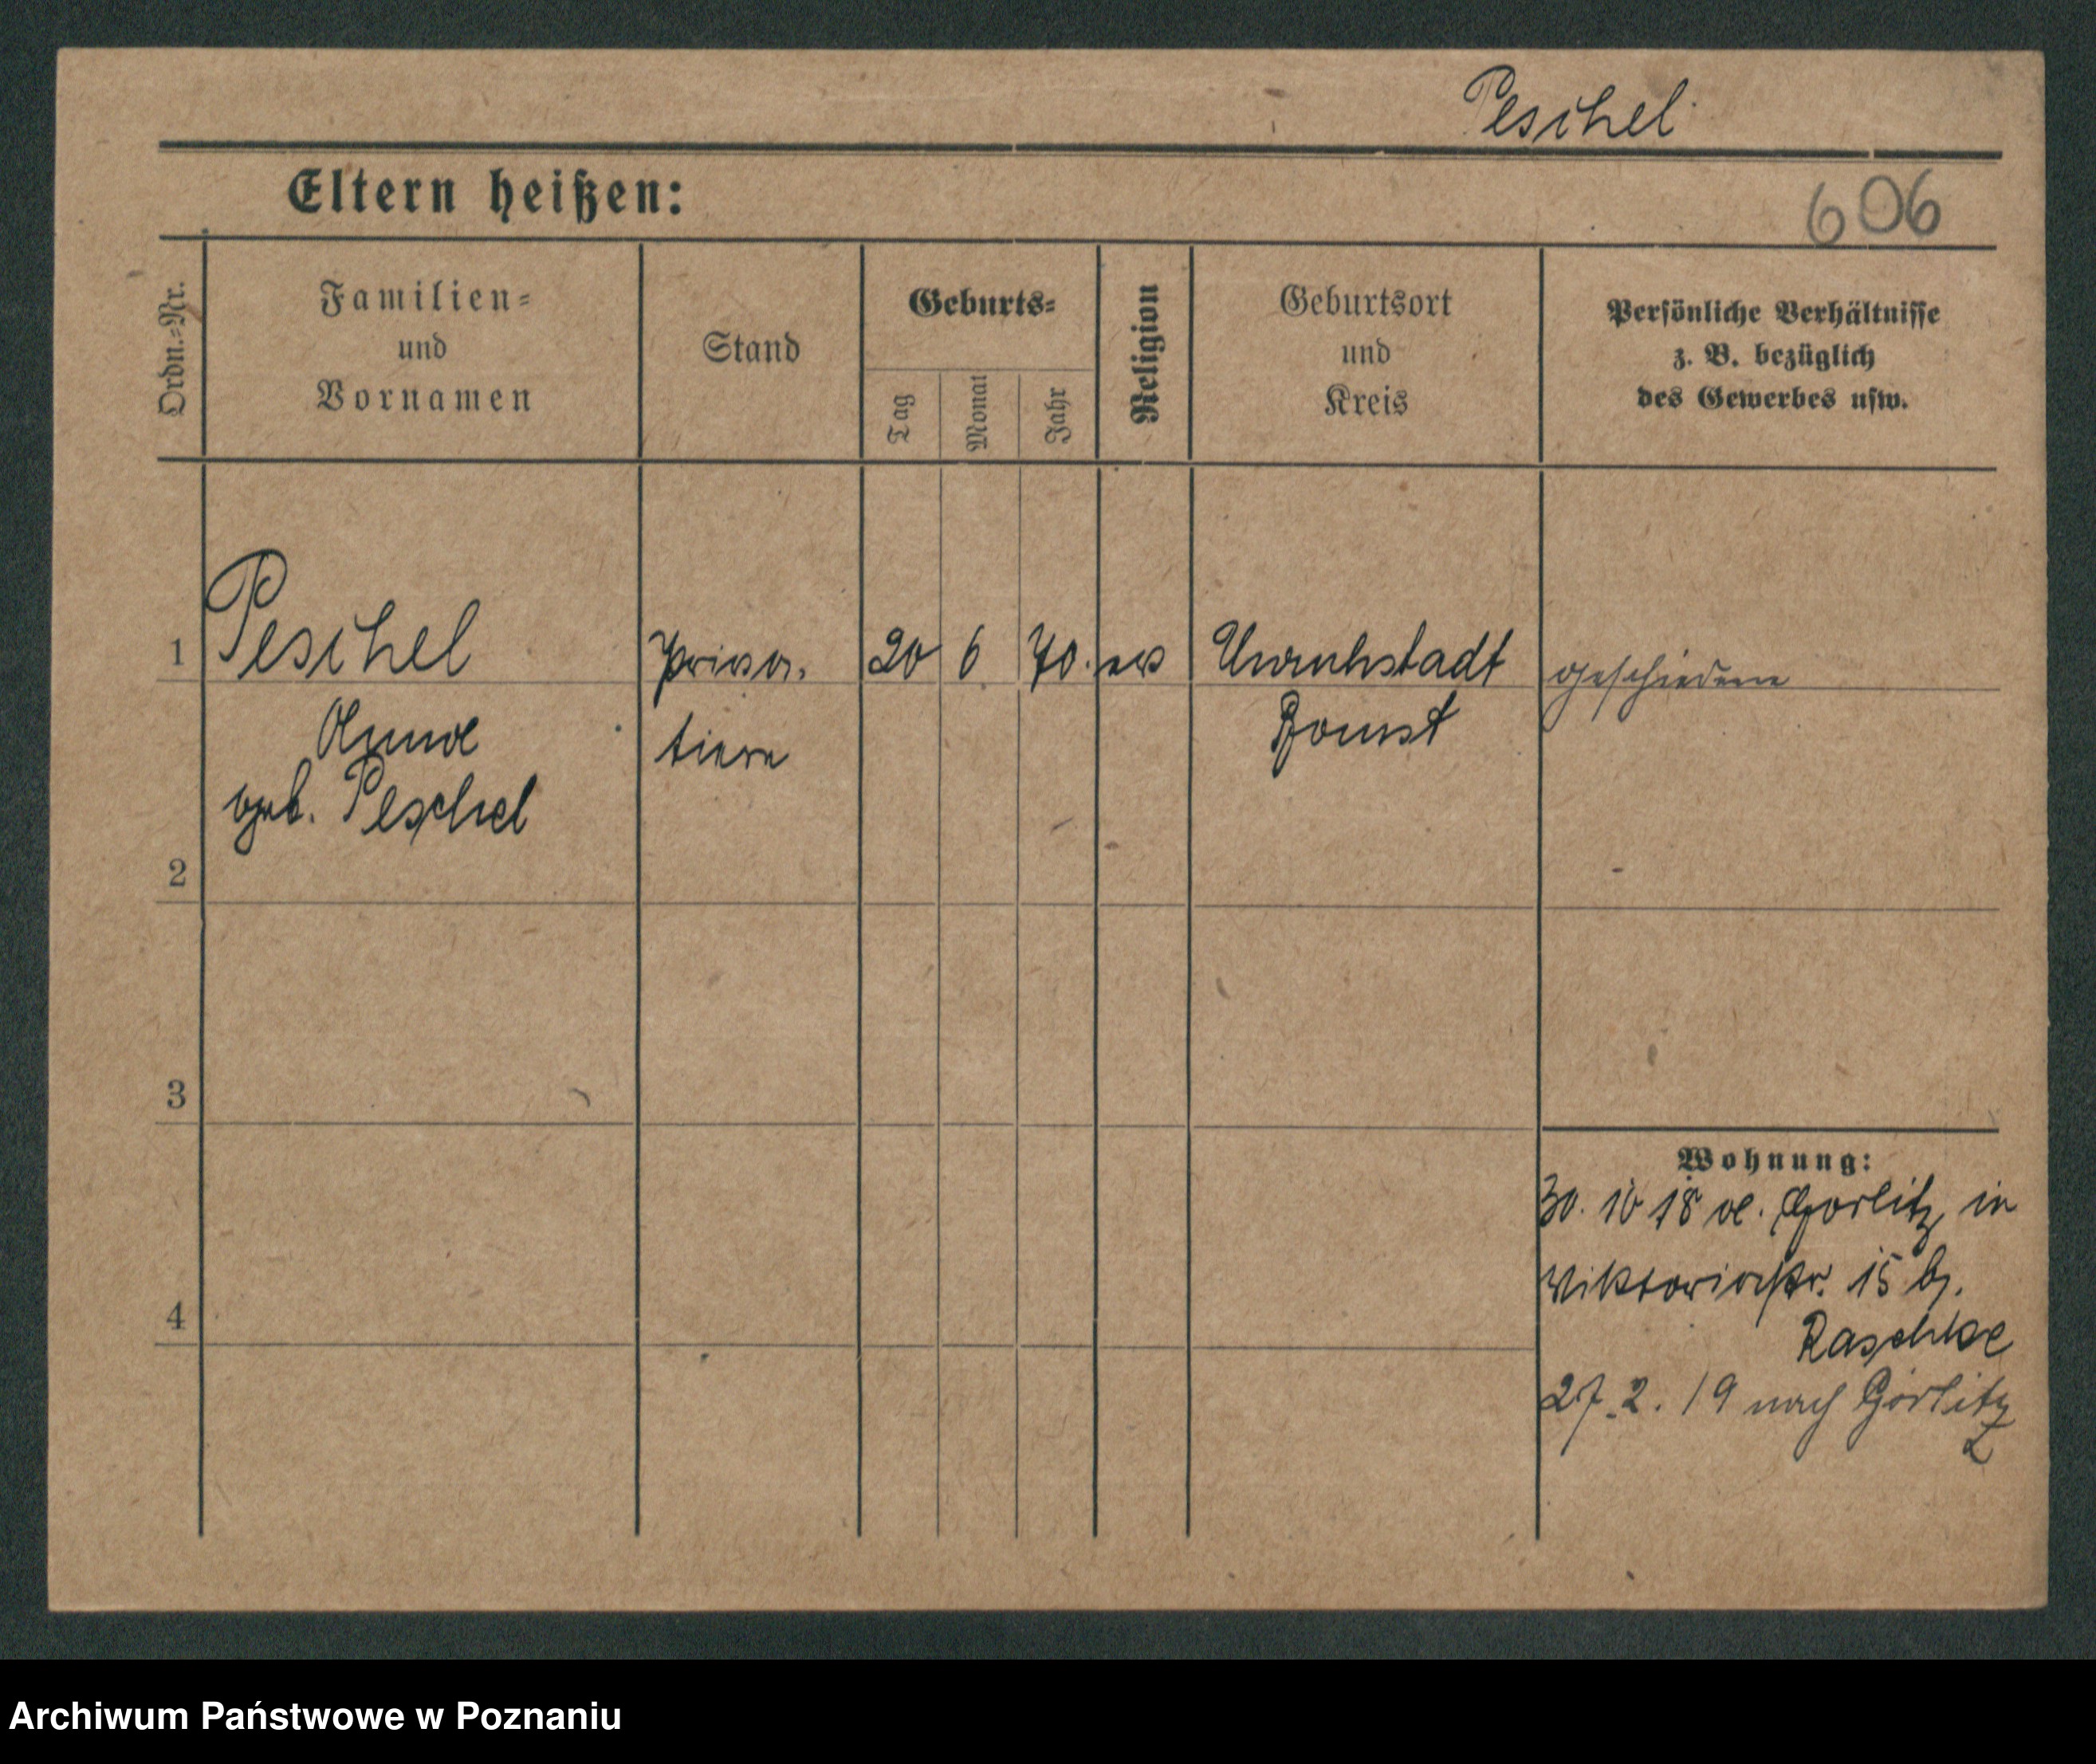 Peschel
Eltern heißen:
606
Ordn.-Nr.
Familien-
und
Vornamen
Stand
Geburts-
Tag
Monat
Jahr
Religion
Geburtsort
und
Kreis
Persönliche Verhältnisse
z. B. bezüglich
des Gewerbes usw.
1
Peschel
Anna
geb. Peschel
Priva-
tiere
20
6
70.
ev
Unruhstadt
Bomst
geschieden
2
3
4
Wohnung:
30. 10 18 a. Görlitz in
Viktoriastr. 15 b.
Raschke
27.2.19 nach Görlitz
Archiwum Państwowe w Poznaniu